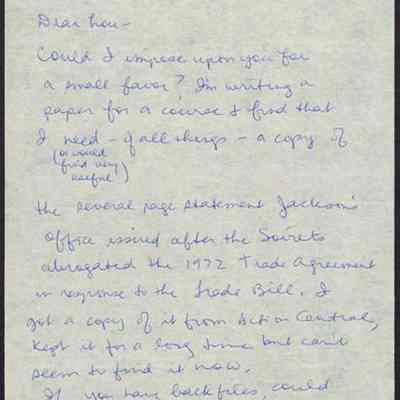 Dear Lou -
Could I impose upon you for
a small favor? I'm writing a
paper for a course & find that
I need - of all things - a copy of
(or would
find very
useful)
the several page statement Jackson's
office issued after the Soviets
abrogated the 1972 Trade Agreement
in response to the Trade Bill. I
got a copy of it from Action Central,
kept it for a long time but can't
seem to find it now.
If you have backfiles, could